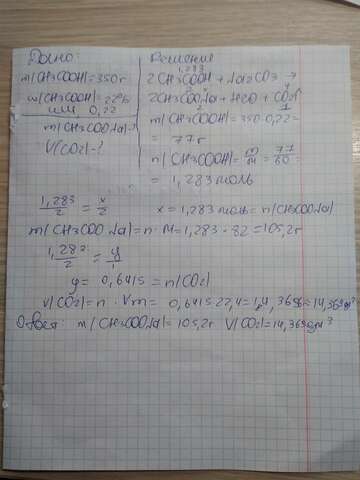 Дано:
m(CH3COOH)=350г
w(CH3COOH)=22%
или 0,22
m(CH3COONa)-?
V(CO2)-?
Решение
1,283
2CH3COOH + Na2CO3 →
2
x y
2CH3COONa + H2O + CO2↑
2 1
m(CH3COOH)=350·0,22=
= 77г
n(CH3COOH)= m/M = 77/60 =
= 1,283моль
1,283/2 = x/2 x=1,283моль=n(CH3COONa)
m(CH3COONa)=n·M=1,283·82=105,2г
1,283/2 = y/1
y= 0,6415=n(CO2)
V(CO2)=n·Vm= 0,6415·22,4=14,3696=14,369дм³
Ответ: m(CH3COONa)=105,2г V(CO2)=14,369дм³